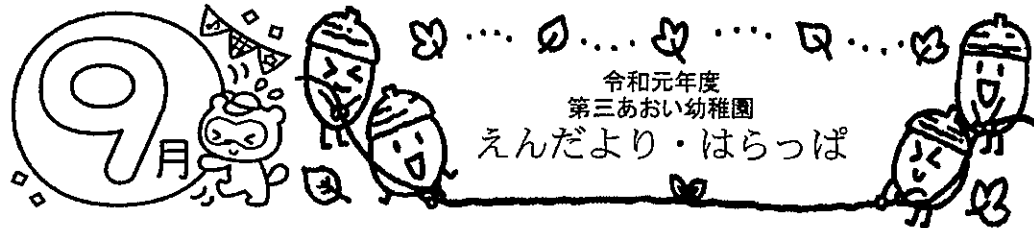 9月
令和元年度
第三あおい幼稚園
えんだより・はらっぱ